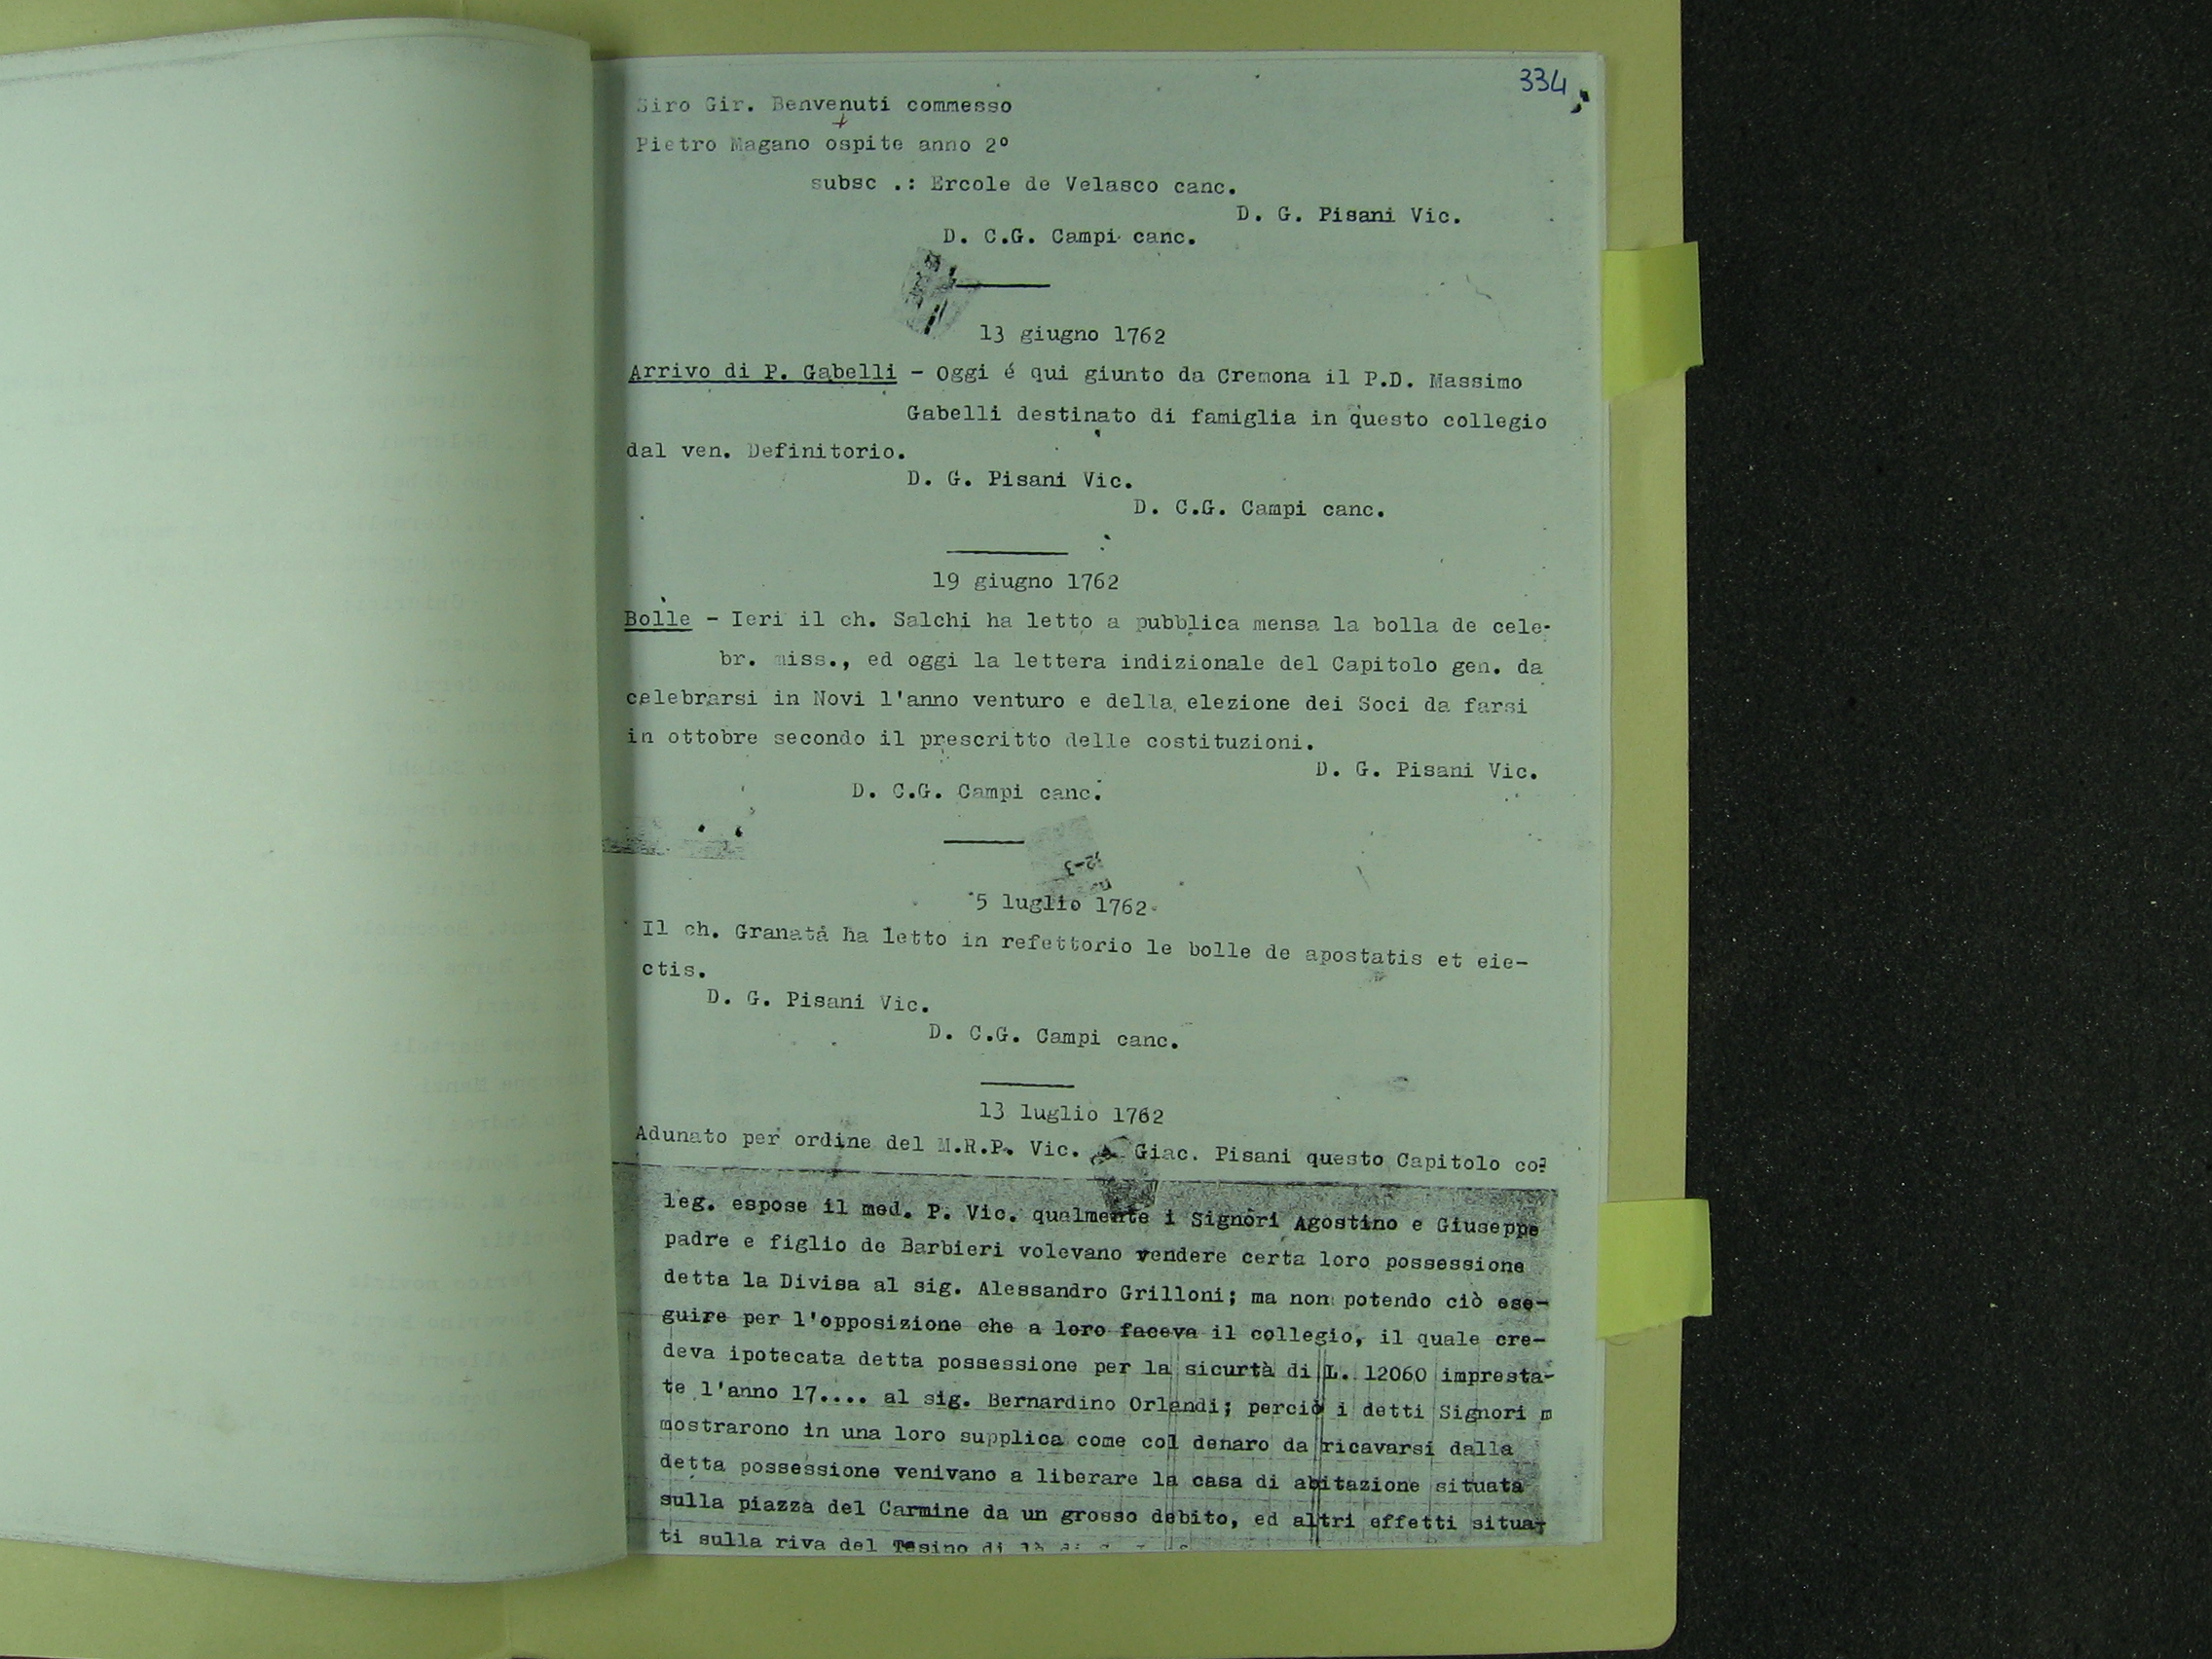 334
Siro Gir. Benvenuti commesso
Pietro Magano ospite anno 2º
subsc .: Ercole de Velasco canc.
D. G. Pisani Vic.
D. C.G. Campi canc.
13 giugno 1762
Arrivo di P. Gabelli - Oggi é qui giunto da Cremona il P.D. Massimo
Gabelli destinato di famiglia in questo collegio
dal ven. Definitorio.
D. G. Pisani Vic.
D. C.G. Campi canc.
19 giugno 1762
Bolle - Ieri il ch. Salchi ha letto a pubblica mensa la bolla de cele-
br. miss., ed oggi la lettera indizionale del Capitolo gen. da
celebrarsi in Novi l'anno venturo e della elezione dei Soci da farsi
in ottobre secondo il prescritto delle costituzioni.
D. G. Pisani Vic.
D. C.G. Campi canc.
5 luglio 1762
Il ch. Granata ha letto in refettorio le bolle de apostatis et eie-
ctis.
D. G. Pisani Vic.
D. C.G. Campi canc.
13 luglio 1762
Adunato per ordine del M.R.P. Vic. Giac. Pisani questo Capitolo co
leg. espose il med. P. Vic. qualmente i Signori Agostino e Giuseppe
padre e figlio de Barbieri volevano vendere certa loro possessione
detta la Divisa al sig. Alessandro Grilloni; ma non potendo ciò ese-
guire per l'opposizione che a loro faceva il collegio, il quale cre-
deva ipotecata detta possessione per la sicurtà di L. 12060 impresta-
te l'anno 17.... al sig. Bernardino Orlandi; perciò i detti Signori m
mostrarono in una loro supplica come col denaro da ricavarsi dalla
detta possessione venivano a liberare la casa di abitazione situata
sulla piazza del Carmine da un grosso debito, ed altri effetti situa-
ti sulla riva del Tesino di